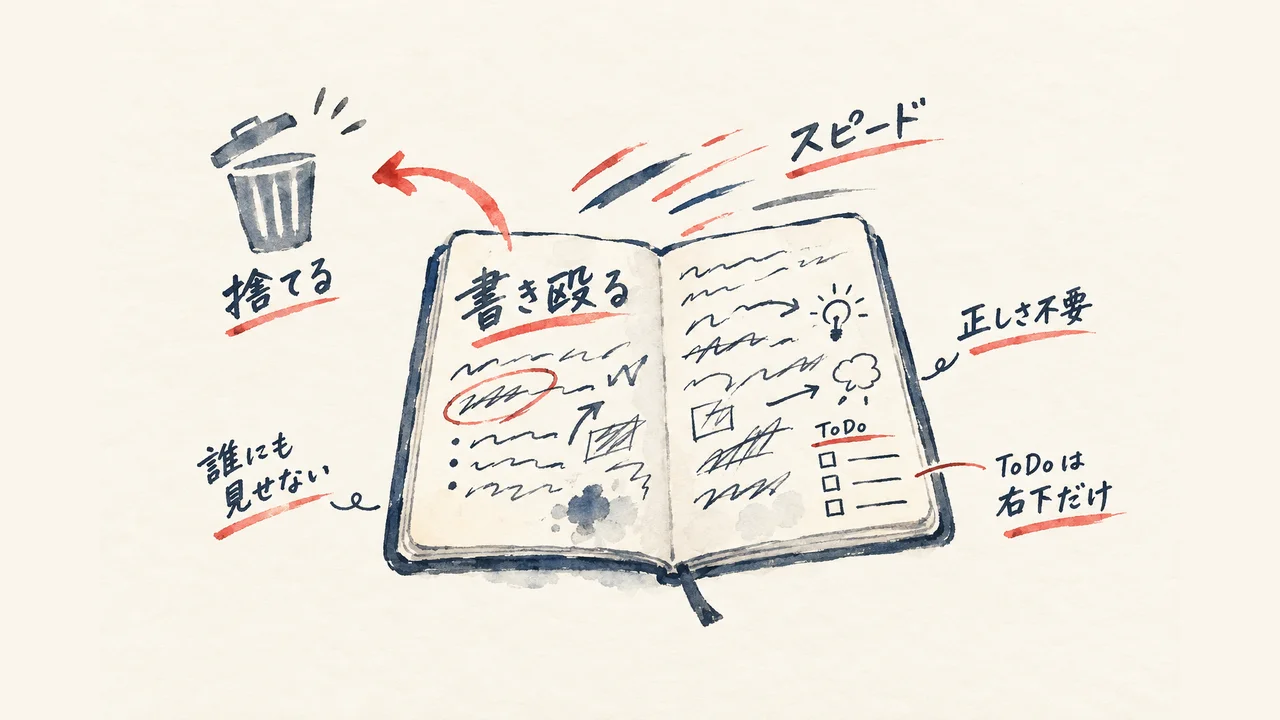 スピード
捨てる
書き殴る
正しさ不要
ToDo
誰にも
見せない
ToDoは
右下だけ